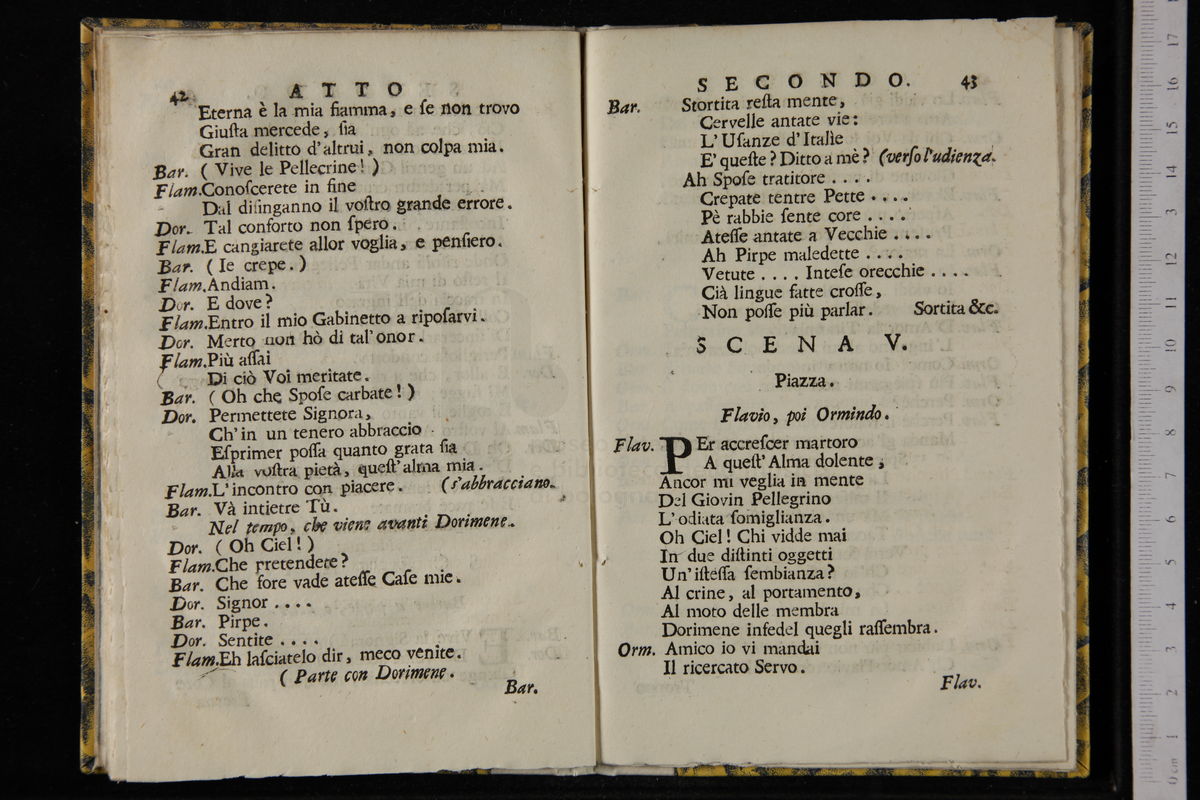 42 ATTO
Eterna è la mia fiamma, e ſe non trovo
Giuſta mercede, ſia
Gran delitto d'altrui, non colpa mia.
Bar. ( Vive le Pellecrine! )
Flam. Conoſcerete in fine
Dal diſinganno il voſtro grande errore.
Dor. Tal conforto non ſpero.
Flam. E cangiarete allor voglia, e penſiero.
Bar. ( Ie crepe. )
Flam. Andiam.
Dor. E dove?
Flam. Entro il mio Gabinetto a ripoſarvi.
Dor. Merto non hò di tal' onor.
Flam. Più aſſai
Di ciò Voi meritate.
Bar. ( Oh che Spoſe carbate! )
Dor. Permettete Signora,
Ch'in un tenero abbraccio
Eſprimer poſſa quanto grata ſia
Alla voſtra pietà, queſt'alma mia.
Flam. L'incontro con piacere. (s'abbracciano.
Bar. Và intietre Tù.
Nel tempo, che viene avanti Dorimene.
Dor. ( Oh Ciel! )
Flam. Che pretendete?
Bar. Che fore vade ateſſe Caſe mie.
Dor. Signor ....
Bar. Pirpe.
Dor. Sentite ....
Flam. Eh laſciatelo dir, meco venite.
( Parte con Dorimene.
Bar.
SECONDO. 43
Bar. Stortita reſta mente,
Cervelle antate vie:
L'Uſanze d'Italìe
E' queſte? Ditto a mè? (verſo l'udienza.
Ah Spoſe tratitore ....
Crepate tentre Pette ....
Pè rabbie ſente core ....
Ateſſe antate a Vecchie ....
Ah Pirpe maledette ....
Vetute .... Inteſe orecchie ....
Cià lingue fatte croſſe,
Non poſſe più parlar. Sortita &c.
SCENA V.
Piazza.
Flavio, poi Ormindo.
Flav. PEr accreſcer martoro
A queſt'Alma dolente,
Ancor mi veglia in mente
Del Giovin Pellegrino
L'odiata ſomiglianza.
Oh Ciel! Chi vidde mai
In due diſtinti oggetti
Un'iſteſſa ſembianza?
Al crine, al portamento,
Al moto delle membra
Dorimene infedel quegli raſſembra.
Orm. Amico io vi mandai
Il ricercato Servo.
Flav.